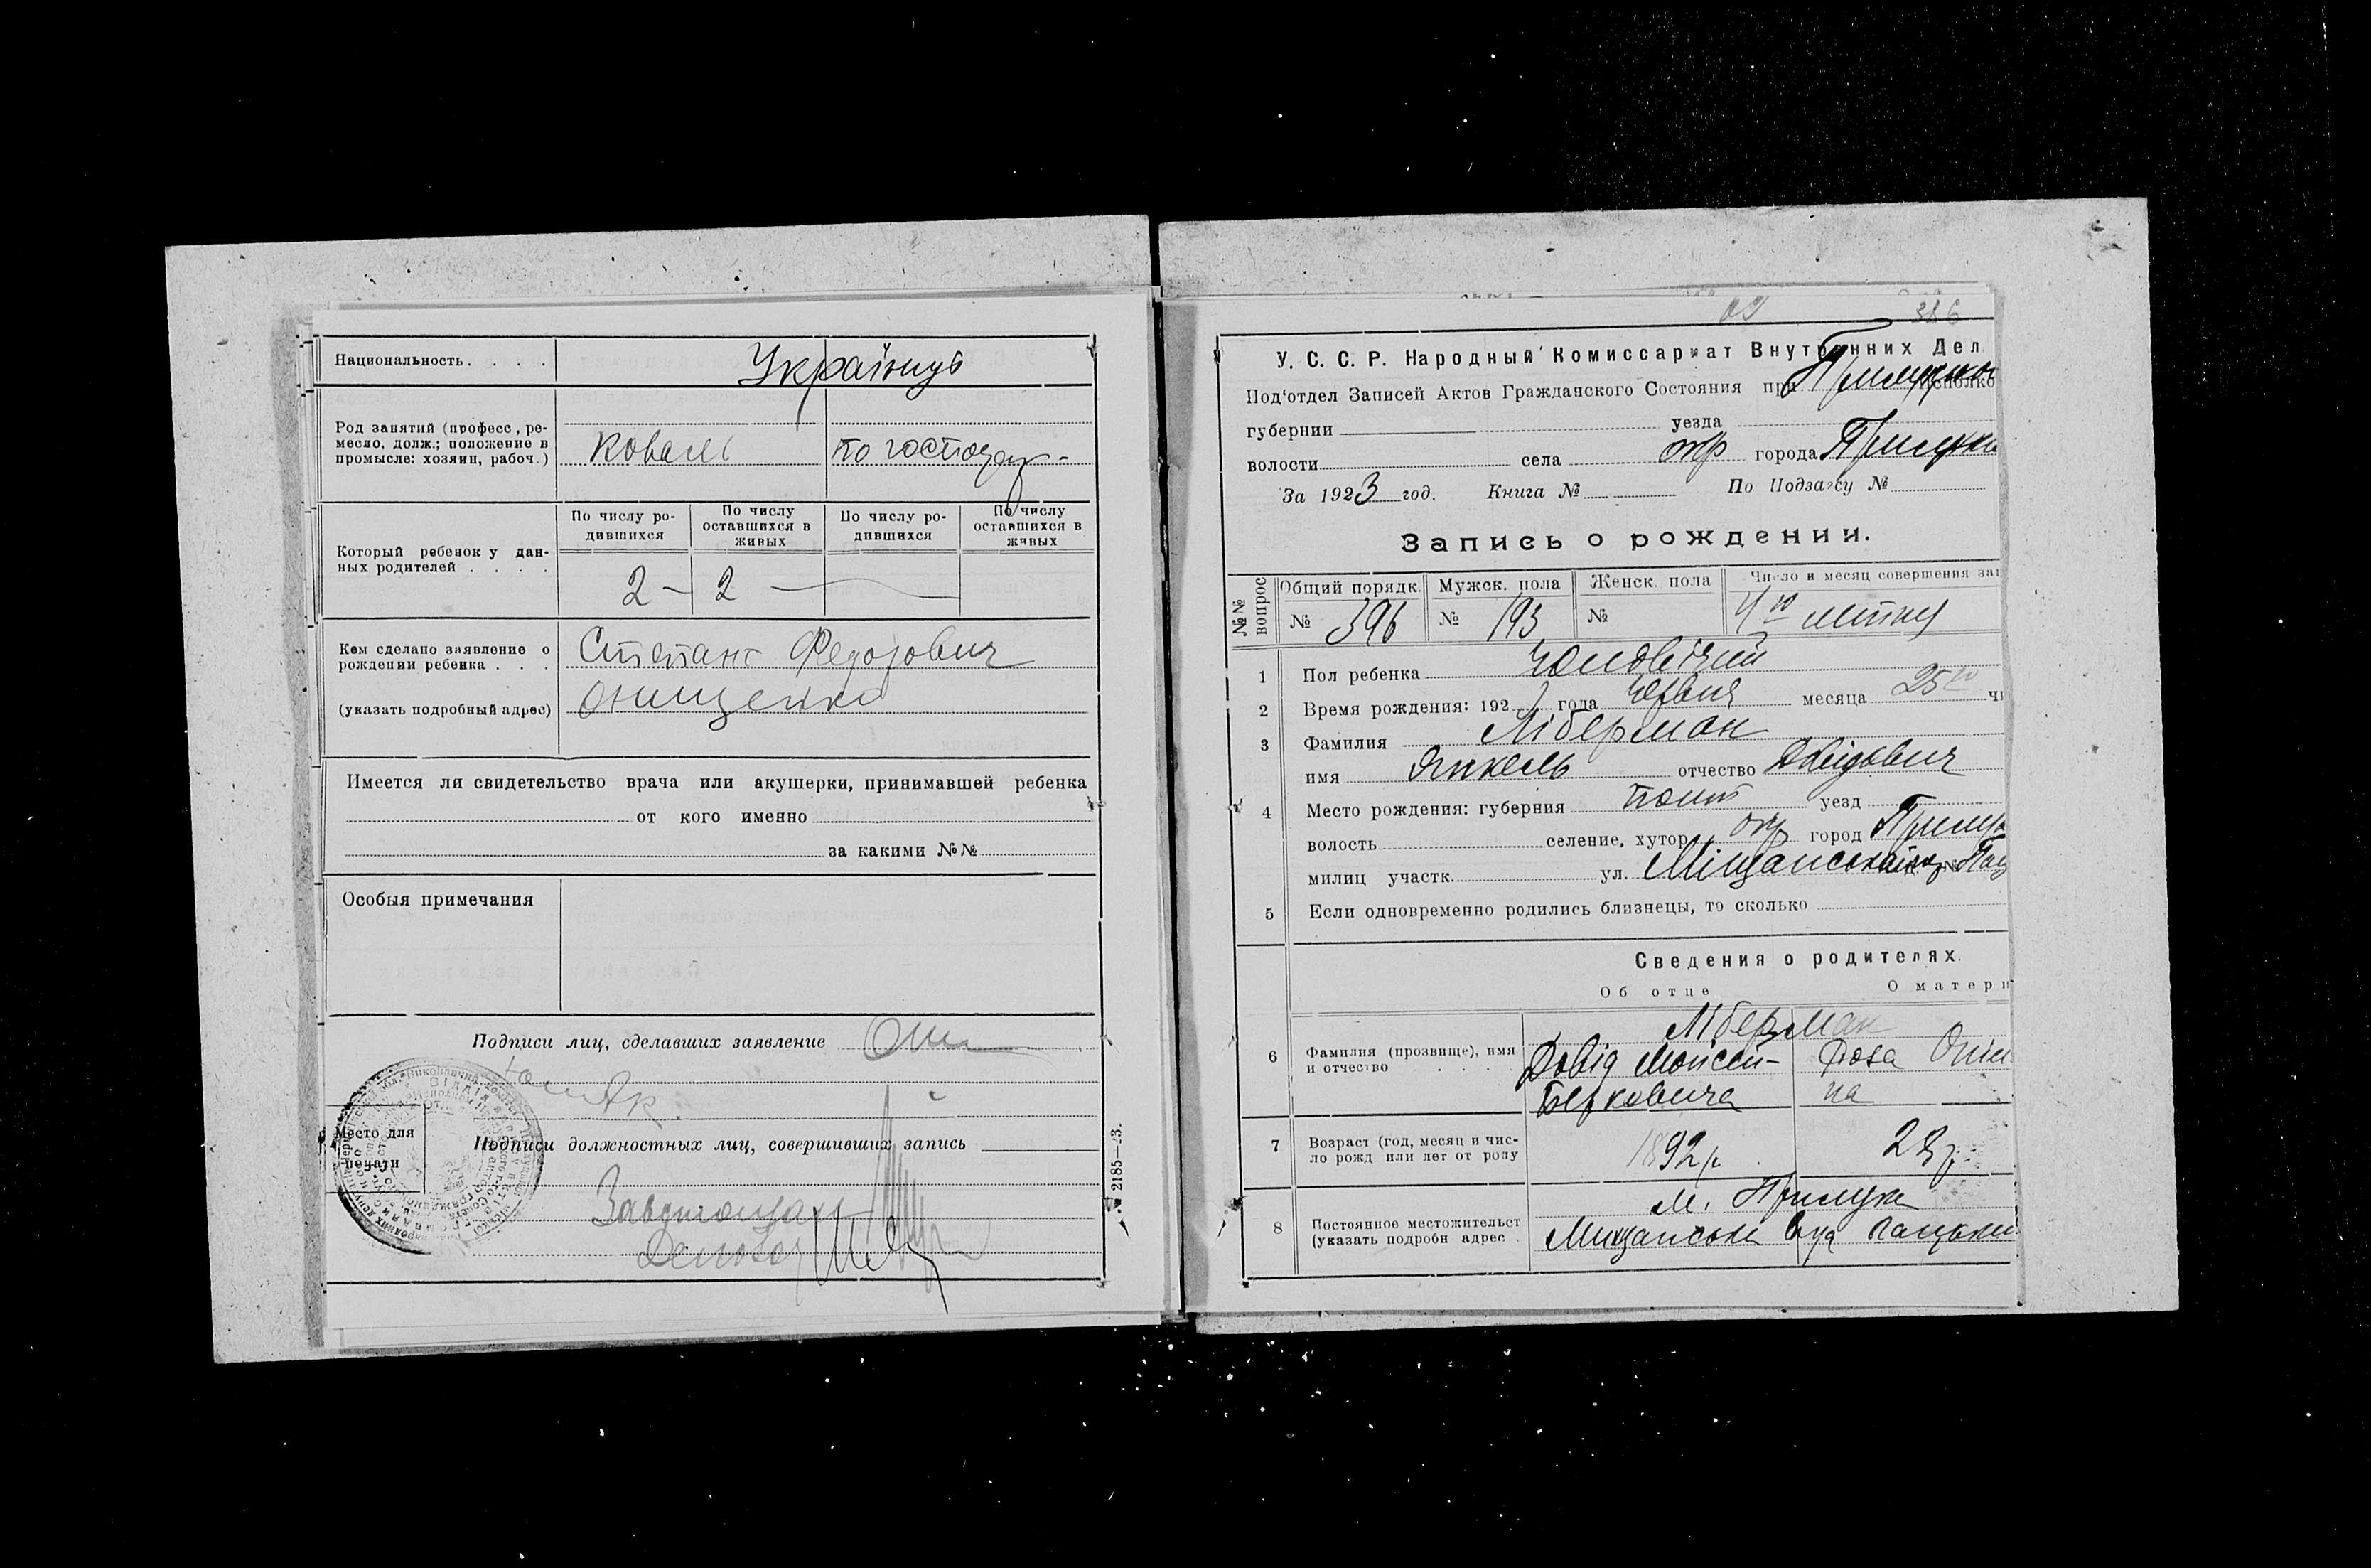 Национальность. . . . .
Українці
Род занятий (професс, ре-
месло, долж.; положение в
промысле: хозяин, рабоч.)
Коваль
по господар-
Который ребенок у дан-
ных родителей . . . .
По числу ро-
дившихся
По числу
оставшихся в
живых
По числу ро-
дившихся
По число
оставшихся в
живых
2 -
2 -
Кем сделано заявление о
рождении ребенка . . .
Степанъ Федорович
(указать подробный адрес)
Онищенко
Имеется ли свидетельство врача или акушерки, принимавшей ребенка
от кого именно
за какими №№
Особыя примечания
Подписи лиц, сделавших заявление
Место для
печати
Подписи должностных лиц, совершивших запись
2185—23.
386
У. С. С. Р. Народный Комиссариат Внутренних Дел
Под'отдел Записей Актов Гражданского Состояния при Прилуцком исполко
губернии уезда
волости села окр города Прилуки
За 1923 год. Книга № По Подзагсу №
Запись о рождении.
№№
вопрос
Общий порядк.
№ 396
Мужск. пола
№ 193
Женск. пола
№
Число и месяц совершения за
4го липня
1 Пол ребенка Чоловічий
2 Время рождения: 192 года Червня месяца 25го чи
3 Фамилия Ліберман
имя Янкель отчество Давидович
4 Место рождения: губерния Полт уезд
волость селение, хутор окр город Прилу
милиц участк. ул. Міщанська №
5 Если одновременно родились близнецы, то сколько
Сведения о родителях.
Об отце
О матери
6 Фамилия (прозвище), имя
и отчество . . . .
Ліберман
Довід Мойсей-
Берковича
Роза
на
7 Возраст (год, месяц и чис-
ло рожд или лет от роду
1892 р.
28 р.
8 Постоянное местожительст
(указать подробн адрес .
м. Прилуки
Міщанська